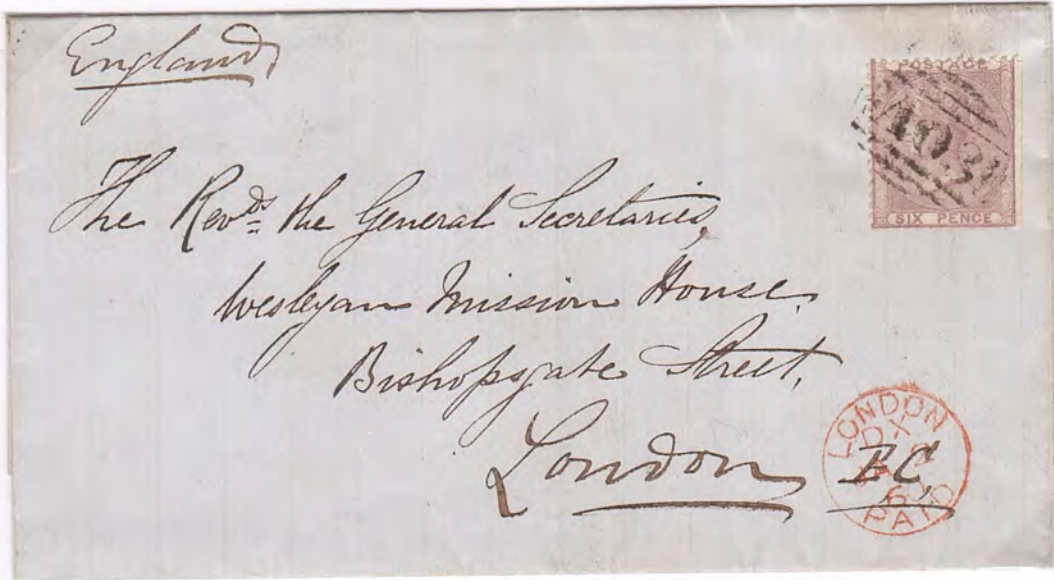 England,
POSTAGE
SIX PENCE
The Revds. the General Secretaries,
Wesleyan Mission House,
Bishopsgate Street,
London E.C,
LONDON
DX
PAID